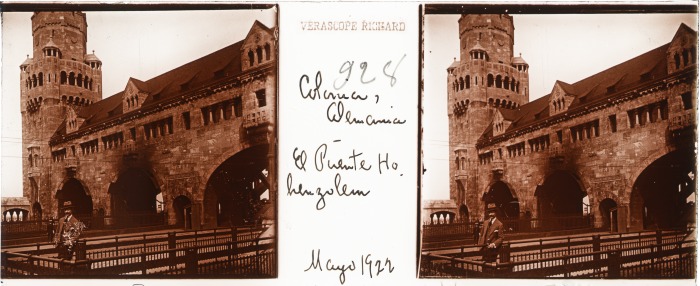 VERASCOPE RICHARD
928
Colonia,
Alemania
El Puente Ho.
henzolern
Mayo 1922